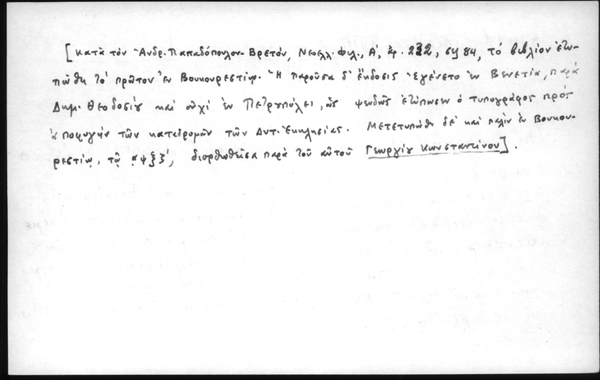 [κατὰ τὸν Ἀνδρ. Παπαδόπουλον-Βρετόν, Νεοελλ. Φιλ., Α', ἀρ. 232, σελ 84, τὸ βιβλίον ἐτυ-
πώθη τὸ πρῶτον ἐν Βουκουρεστίῳ. Ἡ παροῦσα δ' ἔκδοσις ἐγένετο ἐν Βενετίᾳ, παρὰ
Δημ. Θεοδοσίῳ καὶ οὐχὶ ἐν Πετρουπόλει, ὡς ψευδῶς ἐτύπωσεν ὁ τυπογράφος πρὸς
ἀποφυγὴν τῶν καταδρομῶν τῶν Δυτ. Ἐκκλησίας. Μετετυπώθη δὲ καὶ πάλιν ἐν Βουκου-
ρεστίῳ, τῷ αψξζ', διορθωθεῖσα παρὰ τοῦ αὐτοῦ Γεωργίου Κωνσταντίνου].